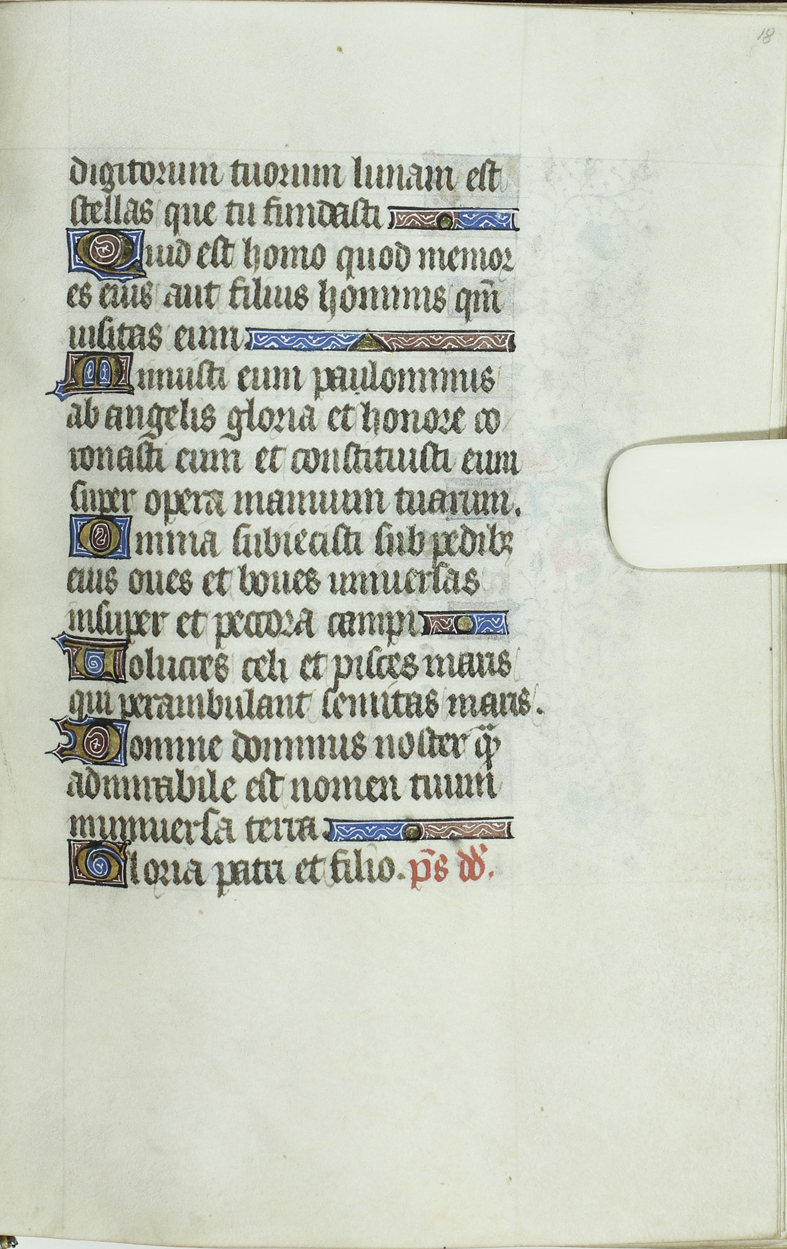 18
digitorum tuorum lunam est
stellas que tu fundasti
Quid est homo quod memor
es eius aut filius hominis qm̄
uisitas eum
Minuisti eum paulominus
ab angelis gloria et honore co
ronasti eum et constituisti eum
super opera manuum tuarum.
Omnia subiecisti sub pedibꝫ
eius oues et boues uniuersas
insuper et peccora campi
Uolucres celi et pisces maris
qui perambulant semitas maris.
Domine dominus noster qͣ̄
admirabile est nomen tuum
inuniuersa terra
Gloria patri et filio. p̄s dd̄.